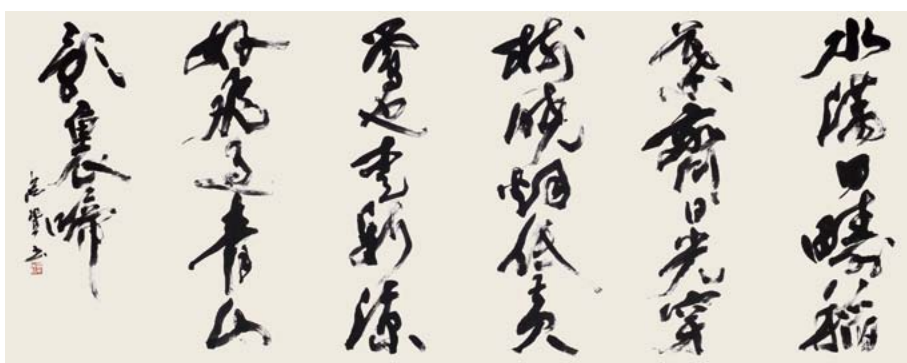 水滿田疇稻
葉齊日光穿
樹曉烟低黄
鶯也愛新涼
好飛過青山
影裏啼